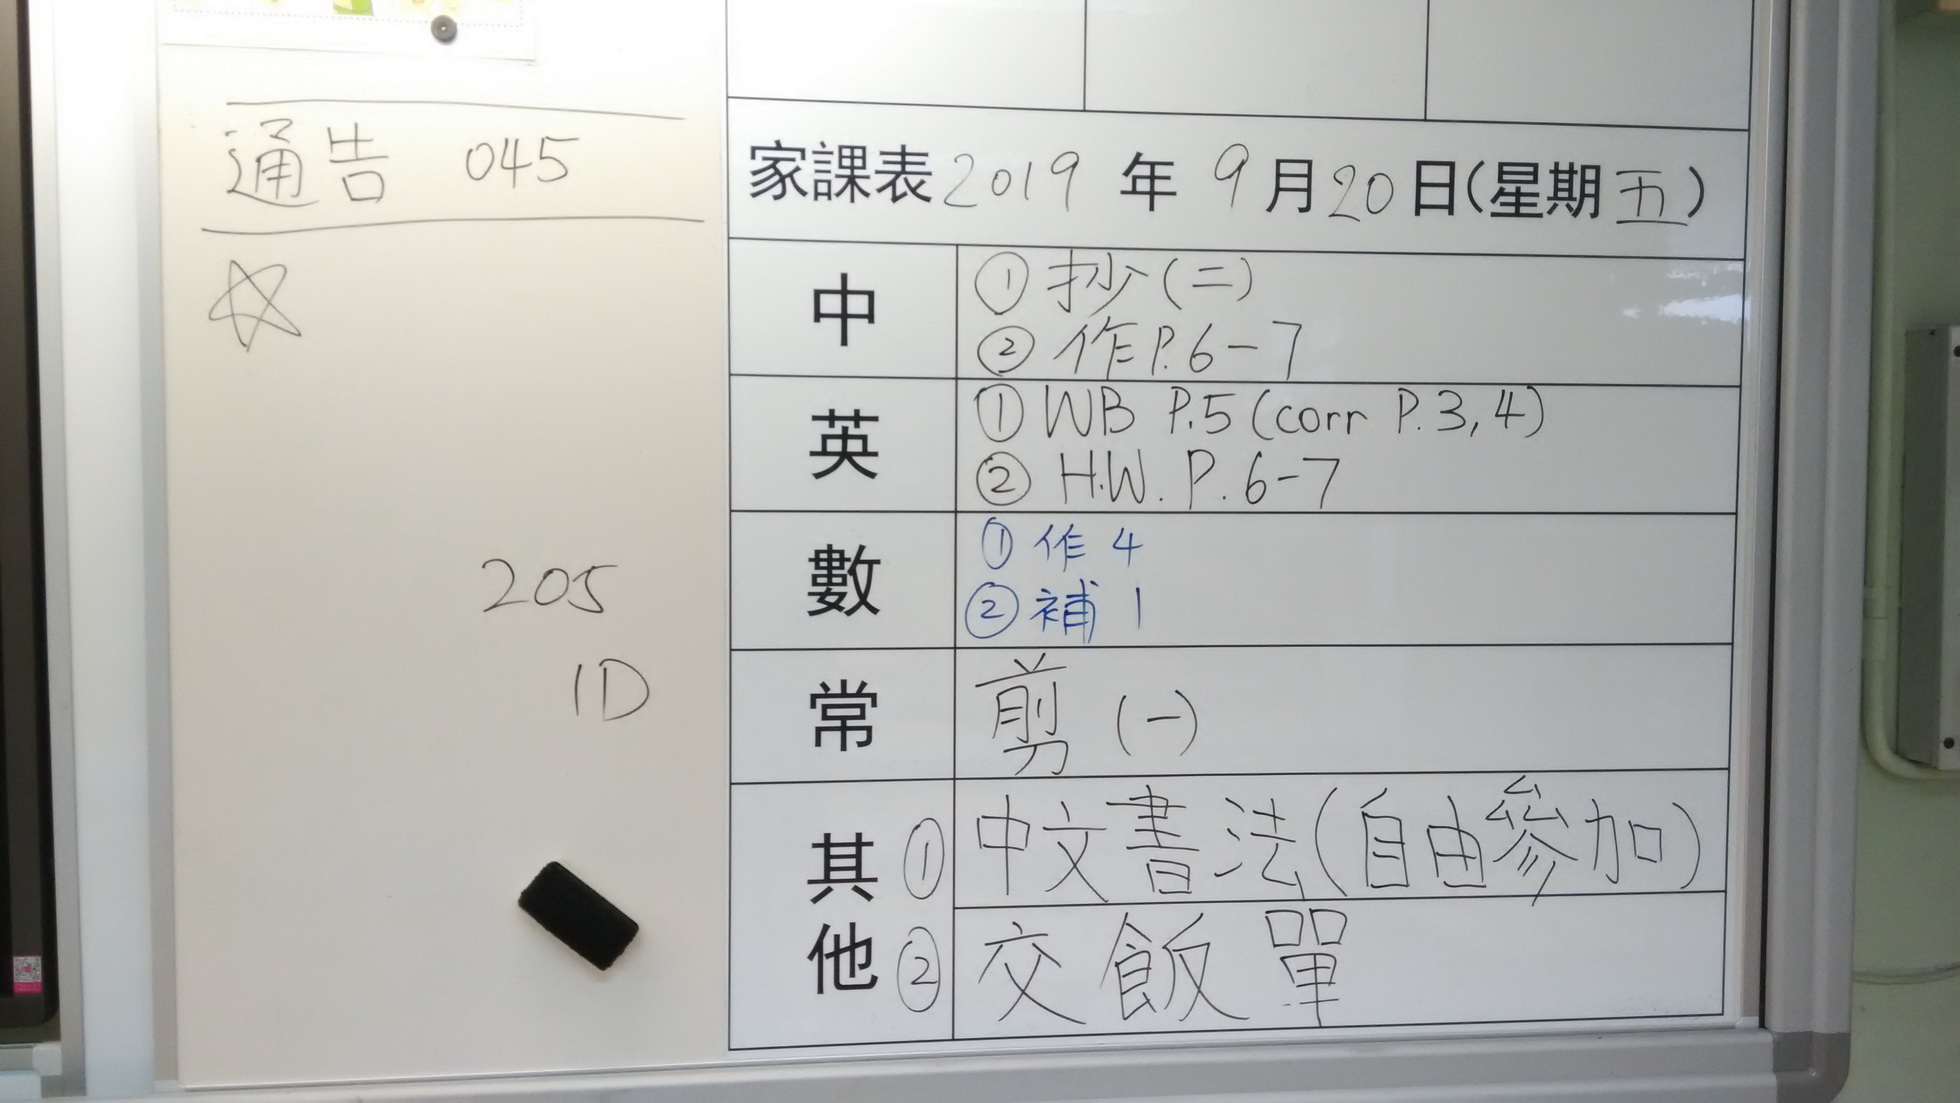 通告 045
☆
205
1D
家課表 2019 年 9 月 20 日(星期 五)
中
① 抄(二)
② 作P.6-7
英
① WB P.5 (corr P.3,4)
② H.W. P.6-7
數
① 作 4
② 補 1
常
剪 (一)
其他
① 中文書法(自由參加)
② 交飯單